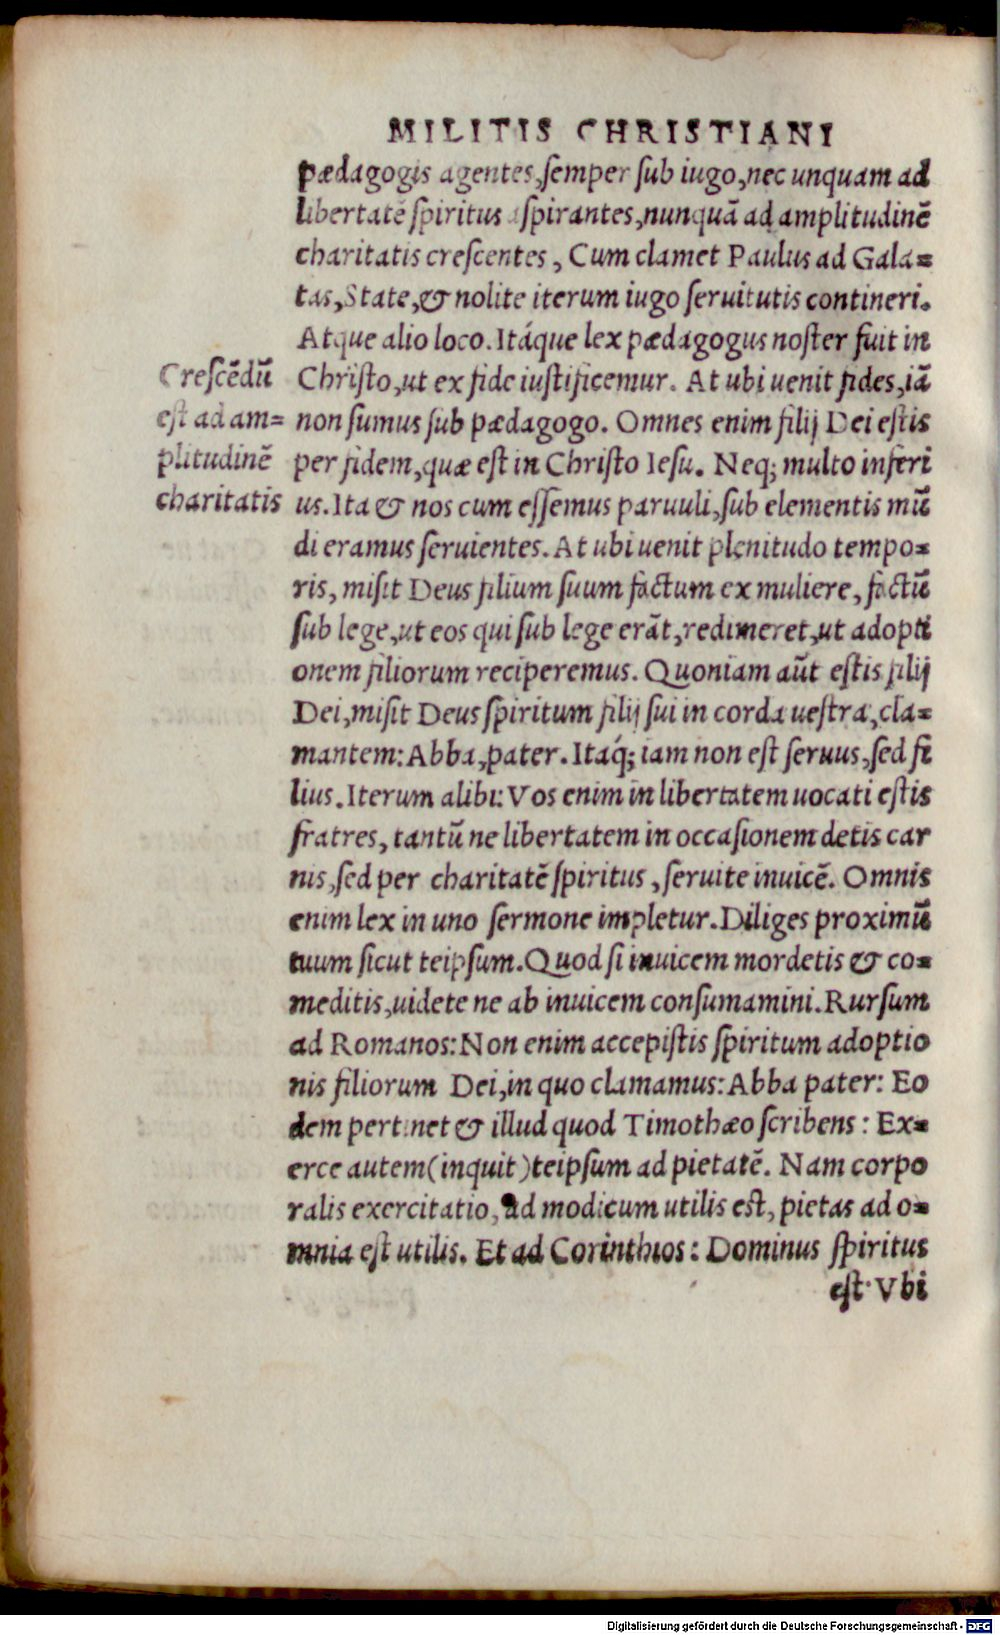 MILITIS CHRISTIANI
pædagogis agentes, semper sub iugo, nec unquam ad
libertatē spiritus aspirantes, nunquā ad amplitudinē
charitatis crescentes, Cum clamet Paulus ad Gala=
tas, State, & nolite iterum iugo seruitutis contineri.
Atque alio loco. Itáque lex pædagogus noster fuit in
Christo, ut ex fide iustificemur. At ubi uenit fides, iā
non sumus sub pædagogo. Omnes enim filij Dei estis
per fidem, quæ est in Christo Iesu. Neq; multo inferi
us. Ita & nos cum essemus paruuli, sub elementis mū
di eramus seruientes. At ubi uenit plenitudo tempo=
ris, misit Deus filium suum factum ex muliere, factū
sub lege, ut eos qui sub lege erāt, redimeret, ut adopti
onem filiorum reciperemus. Quoniam aūt estis filij
Dei, misit Deus spiritum filij sui in corda uestra, cla=
mantem: Abba, pater. Itáq; iam non est seruus, sed fi
lius. Iterum alibi: Vos enim in libertatem uocati estis
fratres, tantū ne libertatem in occasionem detis car
nis, sed per charitatē spiritus, seruite inuicē. Omnis
enim lex in uno sermone impletur. Diliges proximū
tuum sicut teipsum. Quod si inuicem mordetis & co=
meditis, uidete ne ab inuicem consumamini. Rursum
ad Romanos: Non enim accepistis spiritum adoptio
nis filiorum Dei, in quo clamamus: Abba pater: Eo
dem pertinet & illud quod Timothæo scribens: Ex=
erce autem (inquit) teipsum ad pietatē. Nam corpo
ralis exercitatio, ad modicum utilis est, pietas ad o=
mnia est utilis. Et ad Corinthios: Dominus spiritus
est. Vbi
Crescēdū
est ad am=
plitudinē
charitatis
Digitalisierung gefördert durch die Deutsche Forschungsgemeinschaft - DFG